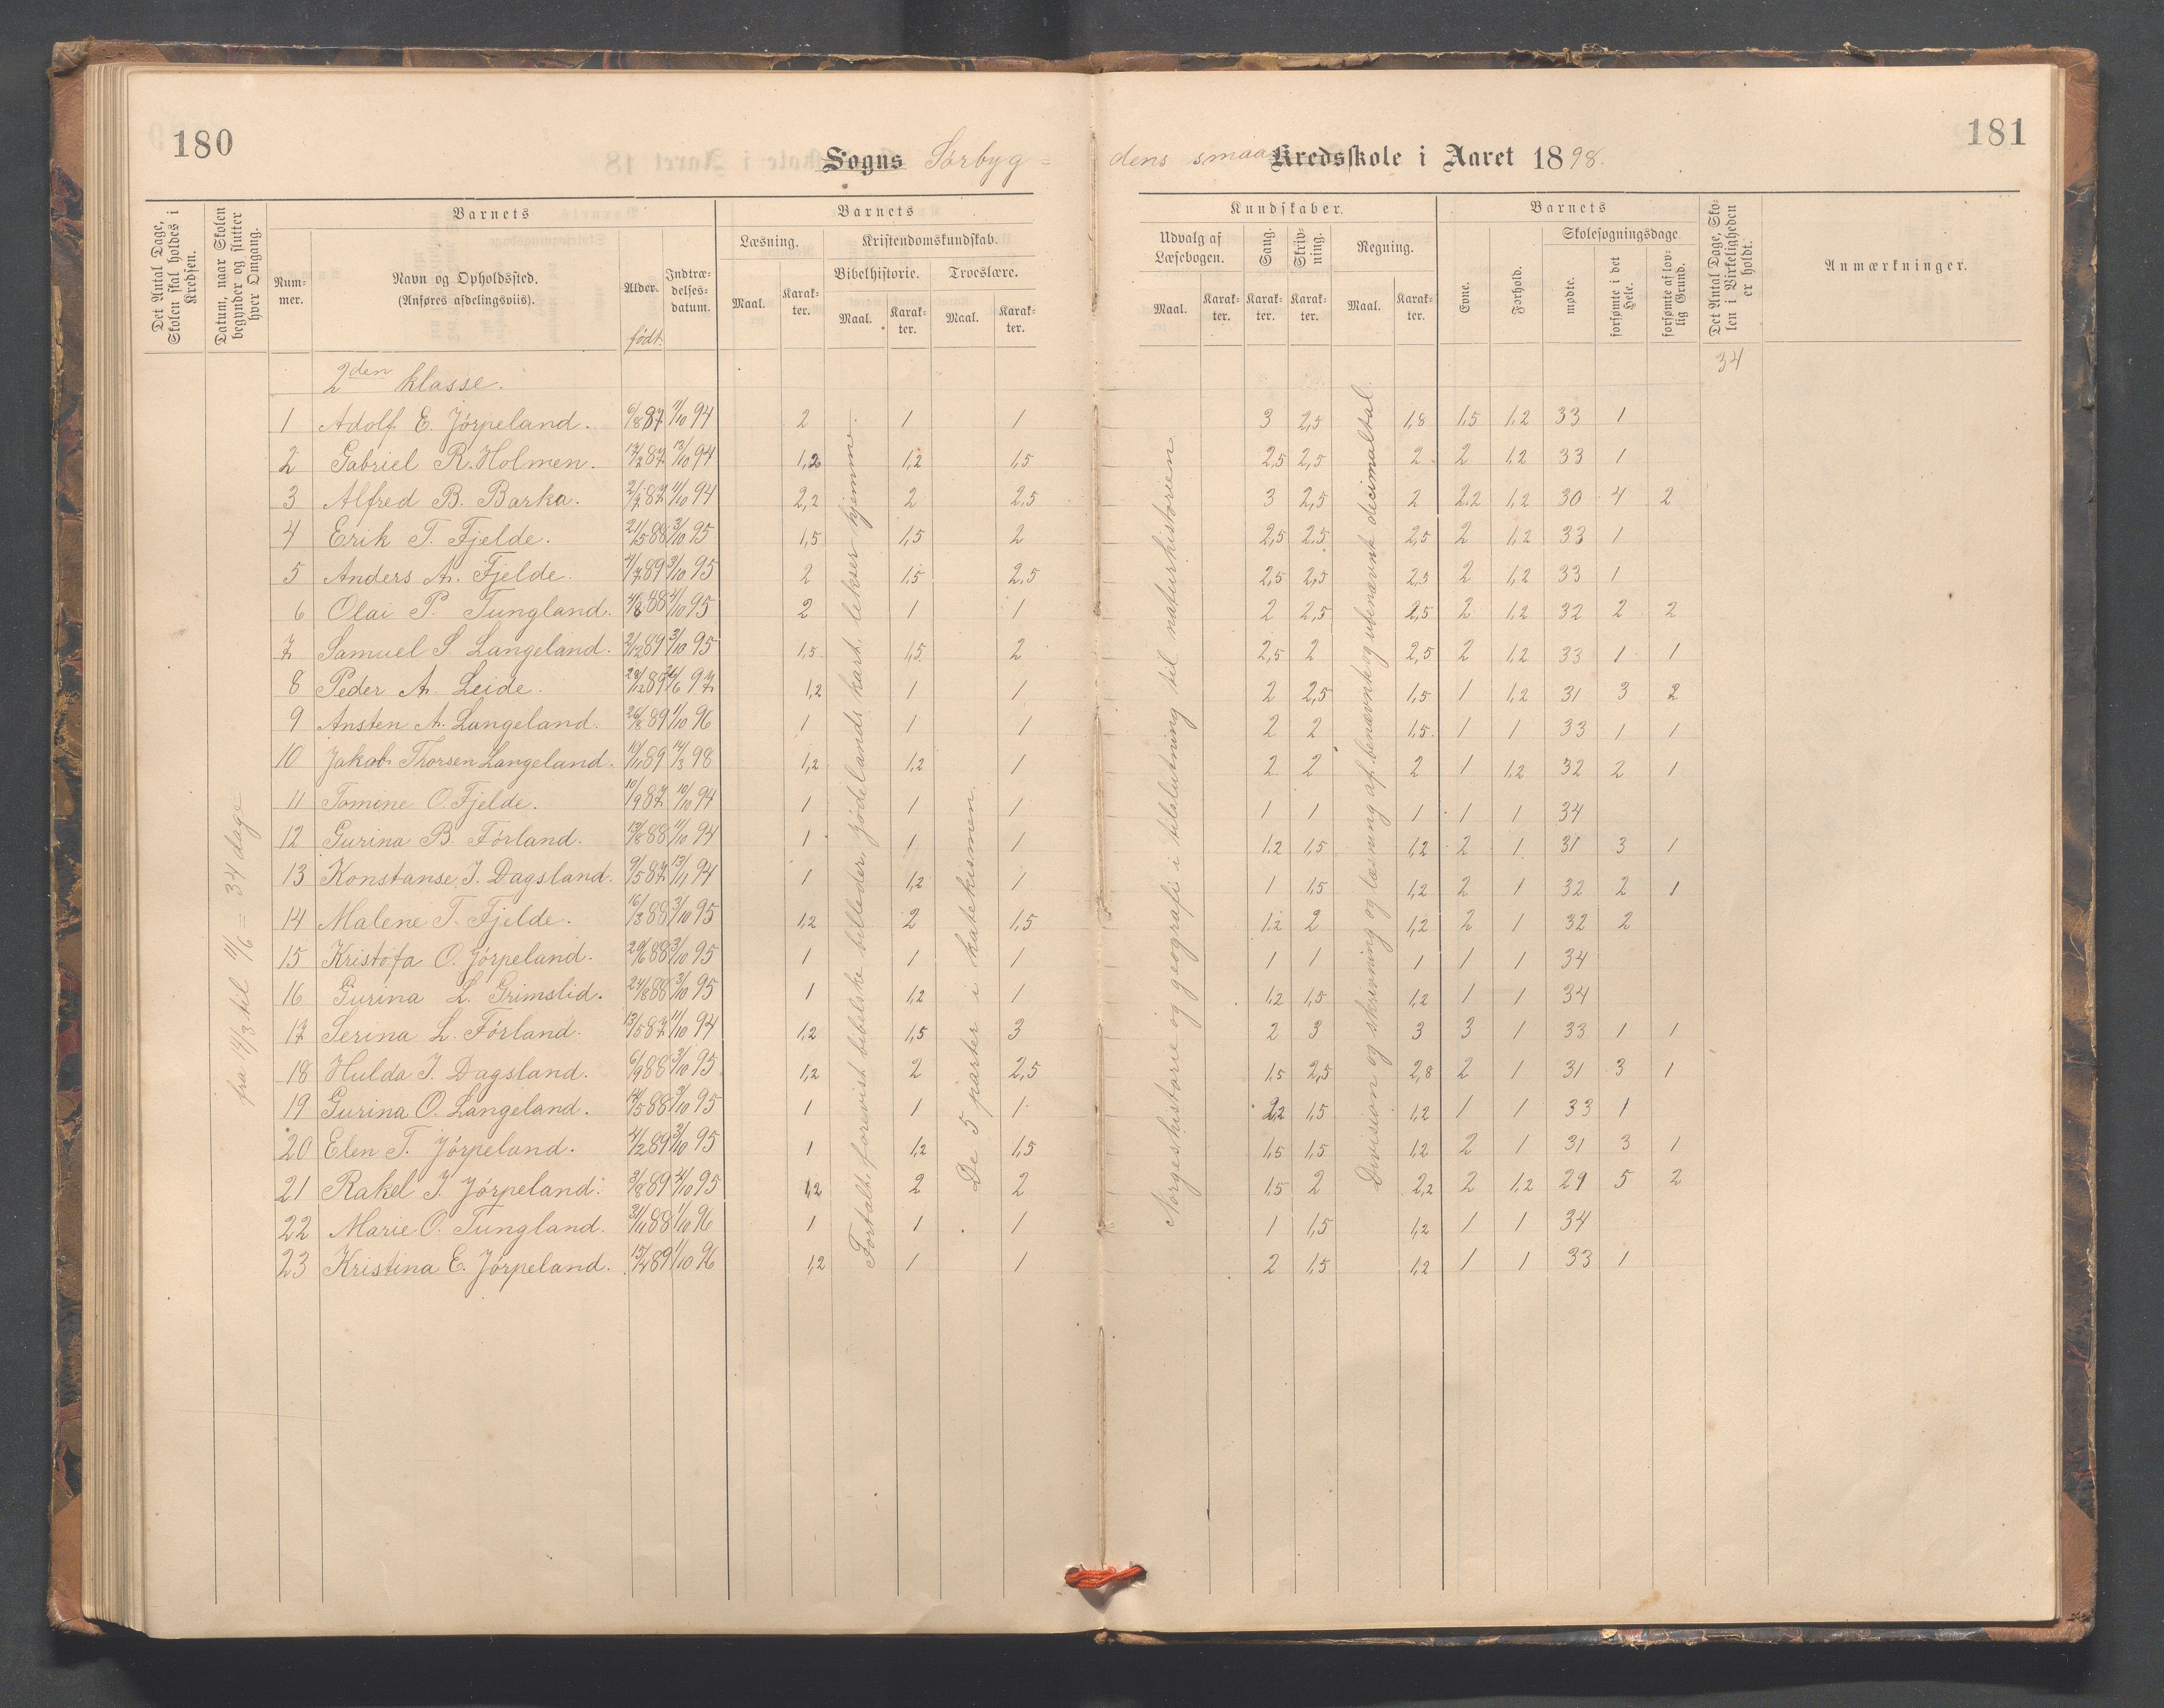 180
181
Sogns Sørbyg=
dens smaa Kredsskole i Aaret 1898.
Det Antal Dage, Skolen skal holdes i Kredsen.
Datum, naar Skolen begynder og slutter hver Omgang.
Barnets
Num-
mer.
Navn og Opholdssted.
(Anføres afdelingsviis).
Alder.
født.
Indtræ-
delses-
datum.
Barnets
Læsning.
Kristendomskundskab.
Bibelhistorie.
Troeslære.
Maal.
Karak-
ter.
Maal.
Karak-
ter.
Maal.
Karak-
ter.
Kundskaber.
Udvalg af
Læsebogen.
Sang.
Skriv-
ning.
Regning.
Maal.
Karak-
ter.
Karak-
ter.
Karak-
ter.
Maal.
Karak-
ter.
Barnets
Evne.
Forhold.
Skolesøgningsdage
mødte.
forsømte i det
Hele.
forsømte af lov-
lig Grund.
Det Antal Dage, Sko-
len i Virkeligheden
er holdt.
Anmærkninger.
34
2den klasse.
1 Adolf E. Jørpeland. 6/8 87 11/10 94 2 1 1 3 2,5 1,8 1,5 1,2 33 1
2 Gabriel R. Holmen. 87 13/10 94 1,2 1,2 1,5 2,5 2,5 2 2 1,2 33 1
3 Alfred B. Barka. 87 11/10 94 2,2 2 2,5 3 2,5 2 2,2 1,2 30 4 2
4 Erik T. Fjelde. 21/5 88 3/10 95 1,5 1,5 2 2,5 2,5 2,5 2 1,2 33 1
5 Anders A. Fjelde. 4/7 89 3/10 95 2 1,5 2,5 2,5 2,5 2,5 2 1,2 33 1
6 Olai P. Tungland. 88 95 2 1 1 2 2,5 2,5 2 1,2 32 2 2
7 Samuel S. Langeland. 2/12 89 3/10 95 1,5 1,5 2 2,5 2 2,5 2 1,2 33 1 1
8 Peder A. Leide. 28/12 89 97 1,2 1 1 2 2,5 1,5 1 1,2 31 3 2
9 Ansten A. Langeland. 26/8 89 1/10 96 1 1 1 2 2 1,5 1 1 33 1 1
10 Jakob Thorsen Langeland. 89 14/3 98 1,2 1,2 1 2 2 2 1 1,2 32 2 1
11 Tomine O. Fjelde. 10/9 87 10/10 94 1 1 1 1 1 1 1 1 34
12 Gurina B. Førland. 88 11/10 94 1 1 1 1,2 1,5 1,2 2 1 31 3 1
13 Konstanse J. Dagsland. 9/5 87 13/11 94 1 1,2 1 1 1,5 1,2 2 1 32 2 1
14 Malene T. Fjelde. 16/3 88 3/10 95 1,2 2 1,5 1,2 2 1,2 2 1 32 2
15 Kristofa O. Jørpeland. 29/6 88 3/10 95 1 1 1 1 1 1 1 1 34
16 Gurina L. Grimslid. 24/8 88 3/10 95 1 1,2 1 1,2 1,5 1,2 1 1 34
17 Serina L. Førland. 13/5 87 11/10 94 1,2 1,5 3 2 3 3 3 1 33 1 1
18 Hulda J. Dagsland. 6/9 88 3/10 95 1,2 2 2,5 1,5 2,5 2,8 2 1 31 3 1
19 Gurina O. Langeland. 14/5 88 3/10 95 1 1 1 2,2 1,5 1,2 1 1 33 1
20 Elen T. Jørpeland. 4/2 89 3/10 95 1 1,2 1,5 1,5 1,5 1,2 2 1 31 3 1
21 Rakel J. Jørpeland. 3/8 89 95 1,2 2 2 1,5 2 2,2 2 1,2 29 5 2
22 Marie O. Tungland. 3/11 88 1/10 96 1 1 1 1 1,5 1,2 1 1 34
23 Kristina E. Jørpeland. 89 1/10 96 1,2 1 1 2 1,5 1,2 1 1 33 1
fra 14/3 til 11/6 = 34 dage
Fortalt, forevist bibelske billeder, jødelands kart, lekser hjemme.
De 5 parter i katekismen.
Norgeshistorie og geografi i tilslutning til naturhistorien
Division og skrivning og læsning af benævnt og ubenævnt decimaltal.